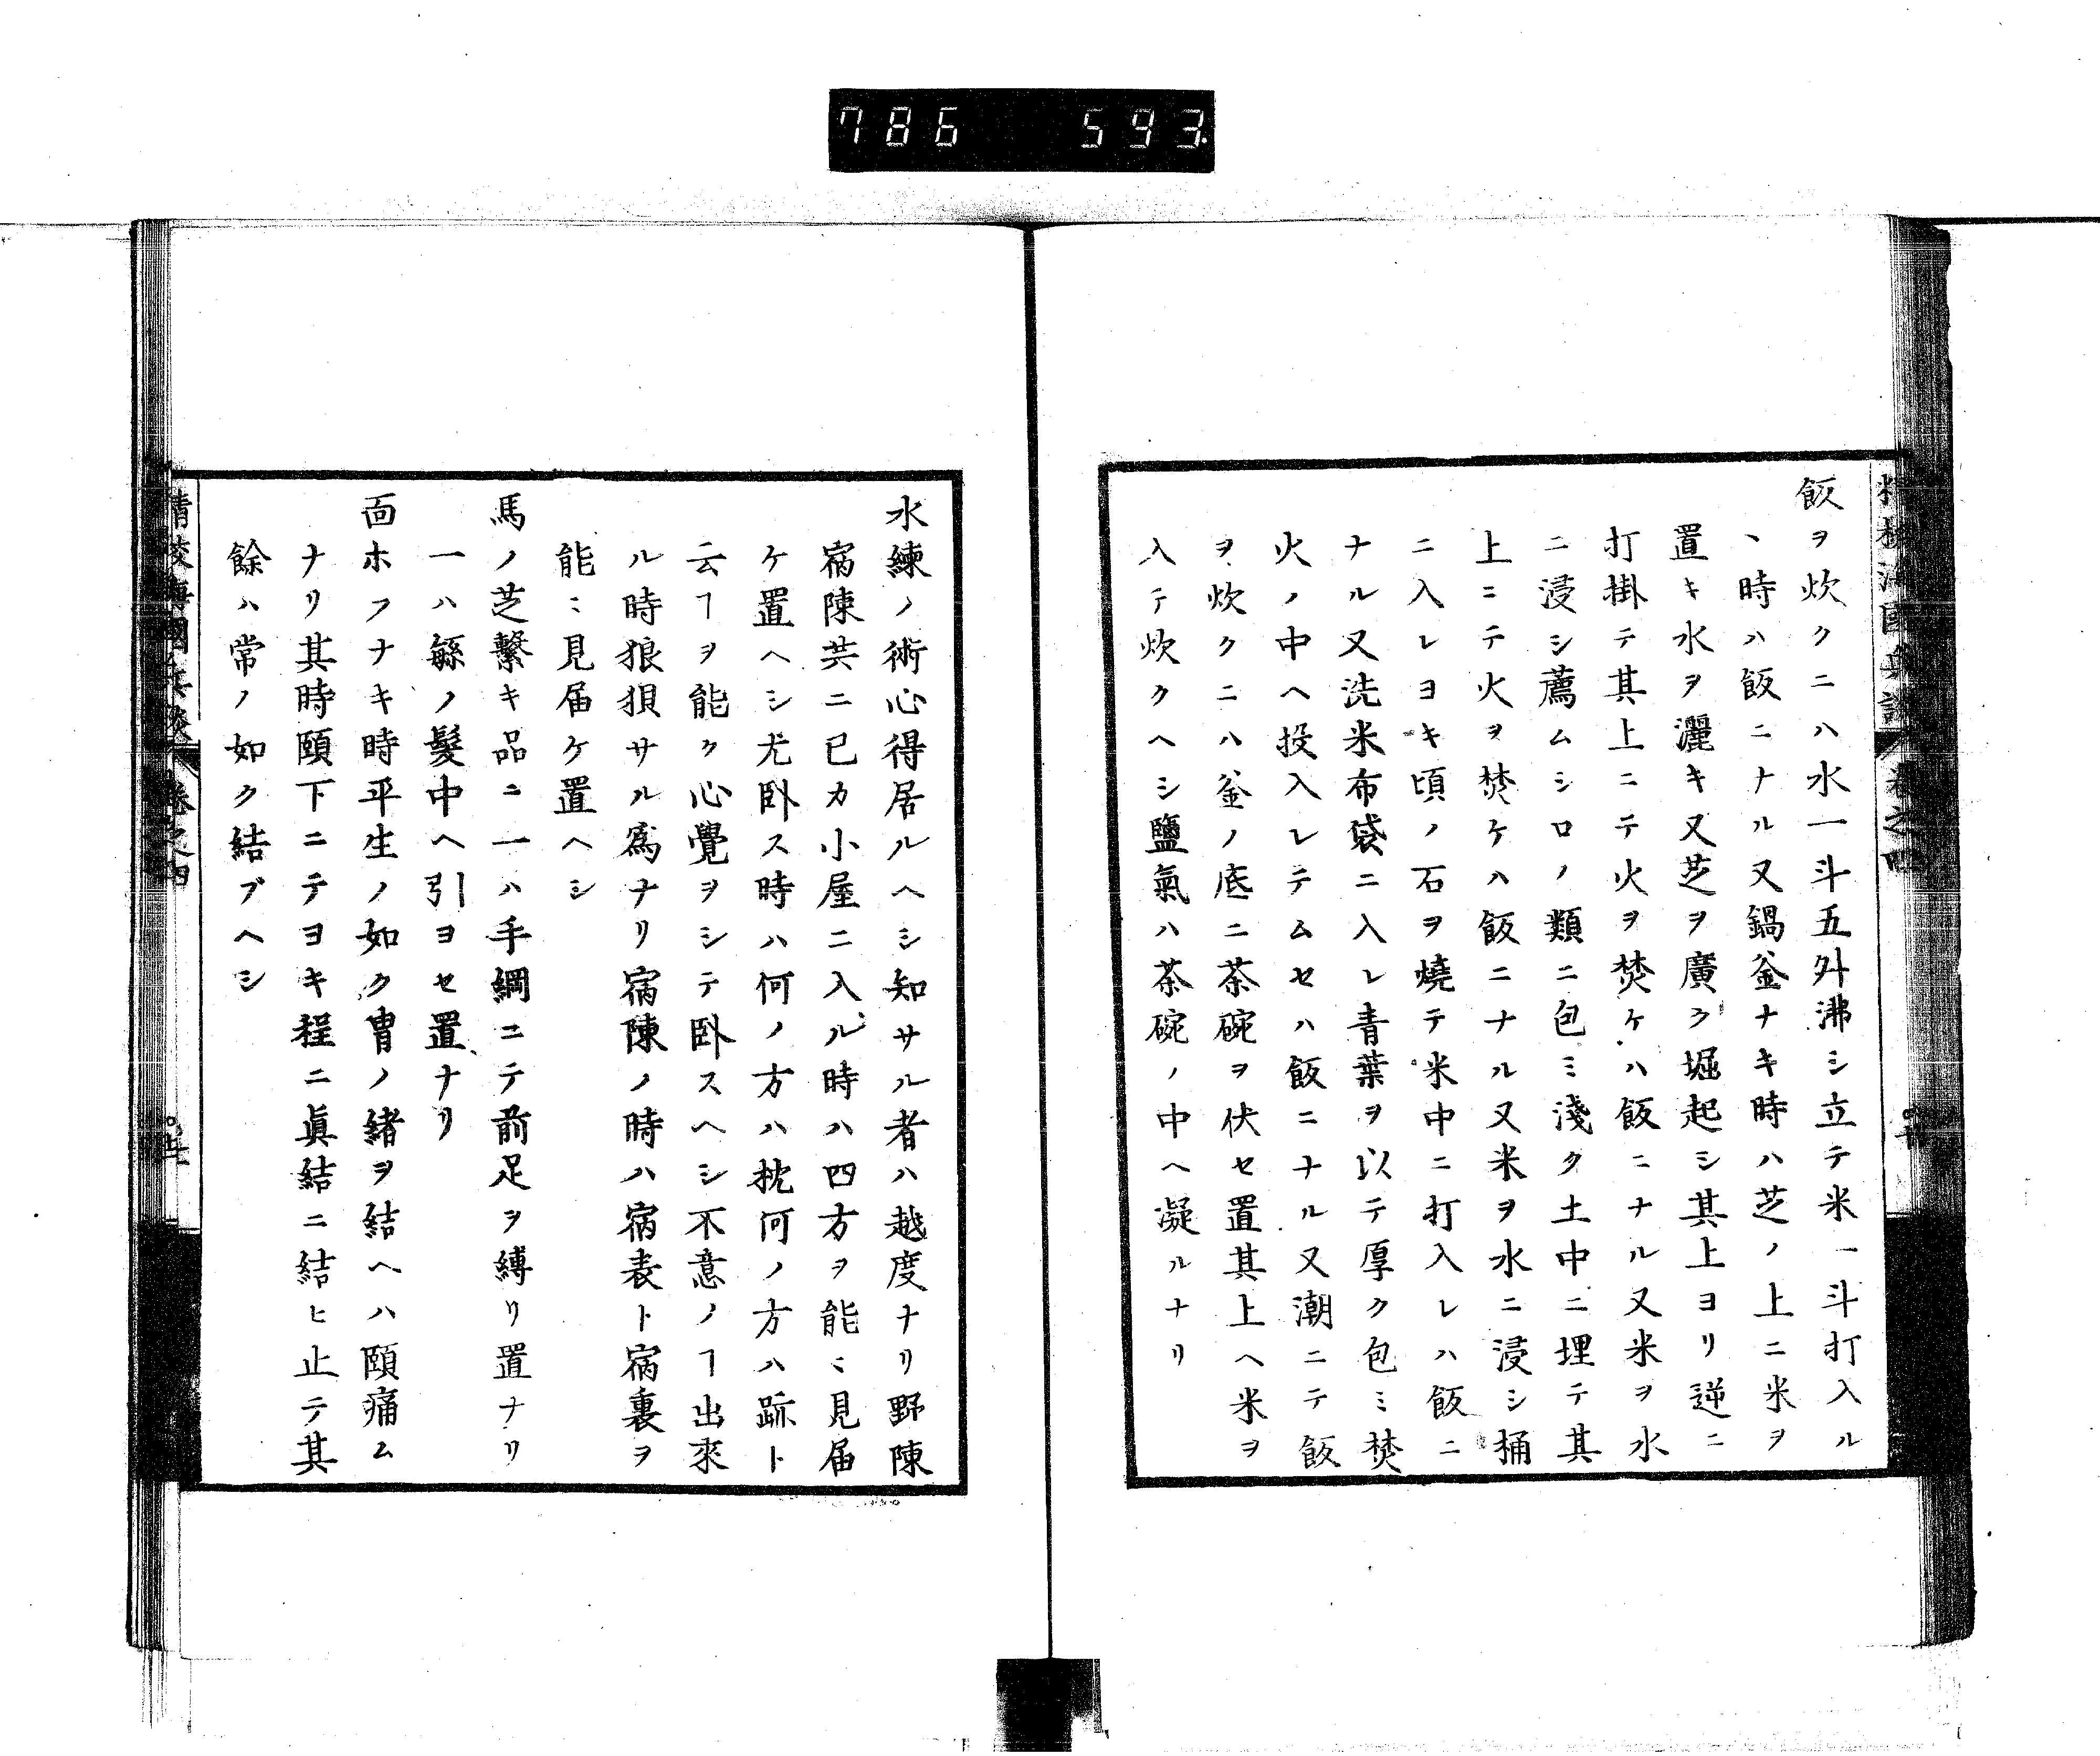 786 593
飯ヲ炊クニハ水一斗五升沸シ立テ米一斗打入ル
、時ハ飯ニナル又鍋釜ナキ時ハ芝ノ上ニ米ヲ
置キ水ヲ灑キ又芝ヲ廣ク堀起シ其上ヨリ逆ニ
打掛テ其上ニテ火ヲ焚ケハ飯ニナル又米ヲ水
ニ浸シ薦ムシロノ類ニ包ミ淺ク土中ニ埋テ其
上ニテ火ヲ焚ケハ飯ニナル又米ヲ水ニ浸シ桶
ニ入レヨキ頃ノ石ヲ燒テ米中ニ打入レハ飯ニ
ナル又洗米布袋ニ入レ青葉ヲ以テ厚ク包ミ焚
火ノ中ヘ投入レテムセハ飯ニナル又潮ニテ飯
ヲ炊クニハ釜ノ底ニ茶碗ヲ伏セ置其上ヘ米ヲ
入テ炊クヘシ鹽氣ハ茶碗ノ中ヘ凝ルナリ
水練ノ術心得居ルヘシ知サル者ハ越度ナリ野陳
宿陳共ニ已カ小屋ニ入ル時ハ四方ヲ能〻見届
ケ置ヘシ尤臥ス時ハ何ノ方ハ枕何ノ方ハ跡ト
云ヿヲ能ク心覺ヲシテ臥スヘシ不意ノヿ出來
ル時狼狽サル爲ナリ宿陳ノ時ハ宿表ト宿裏ヲ
能〻見届ケ置ヘシ
馬ノ芝繋キ品ニ一ハ手綱ニテ前足ヲ縛リ置ナリ
一ハ緜ノ髮中ヘ引ヨセ置ナリ
面ホフナキ時平生ノ如ク冑ノ緒ヲ結ヘハ頤痛ム
ナリ其時頤下ニテヨキ程ニ眞結ニ結ヒ止テ其
餘ハ常ノ如ク結ブヘシ
精校海國兵談 卷之四